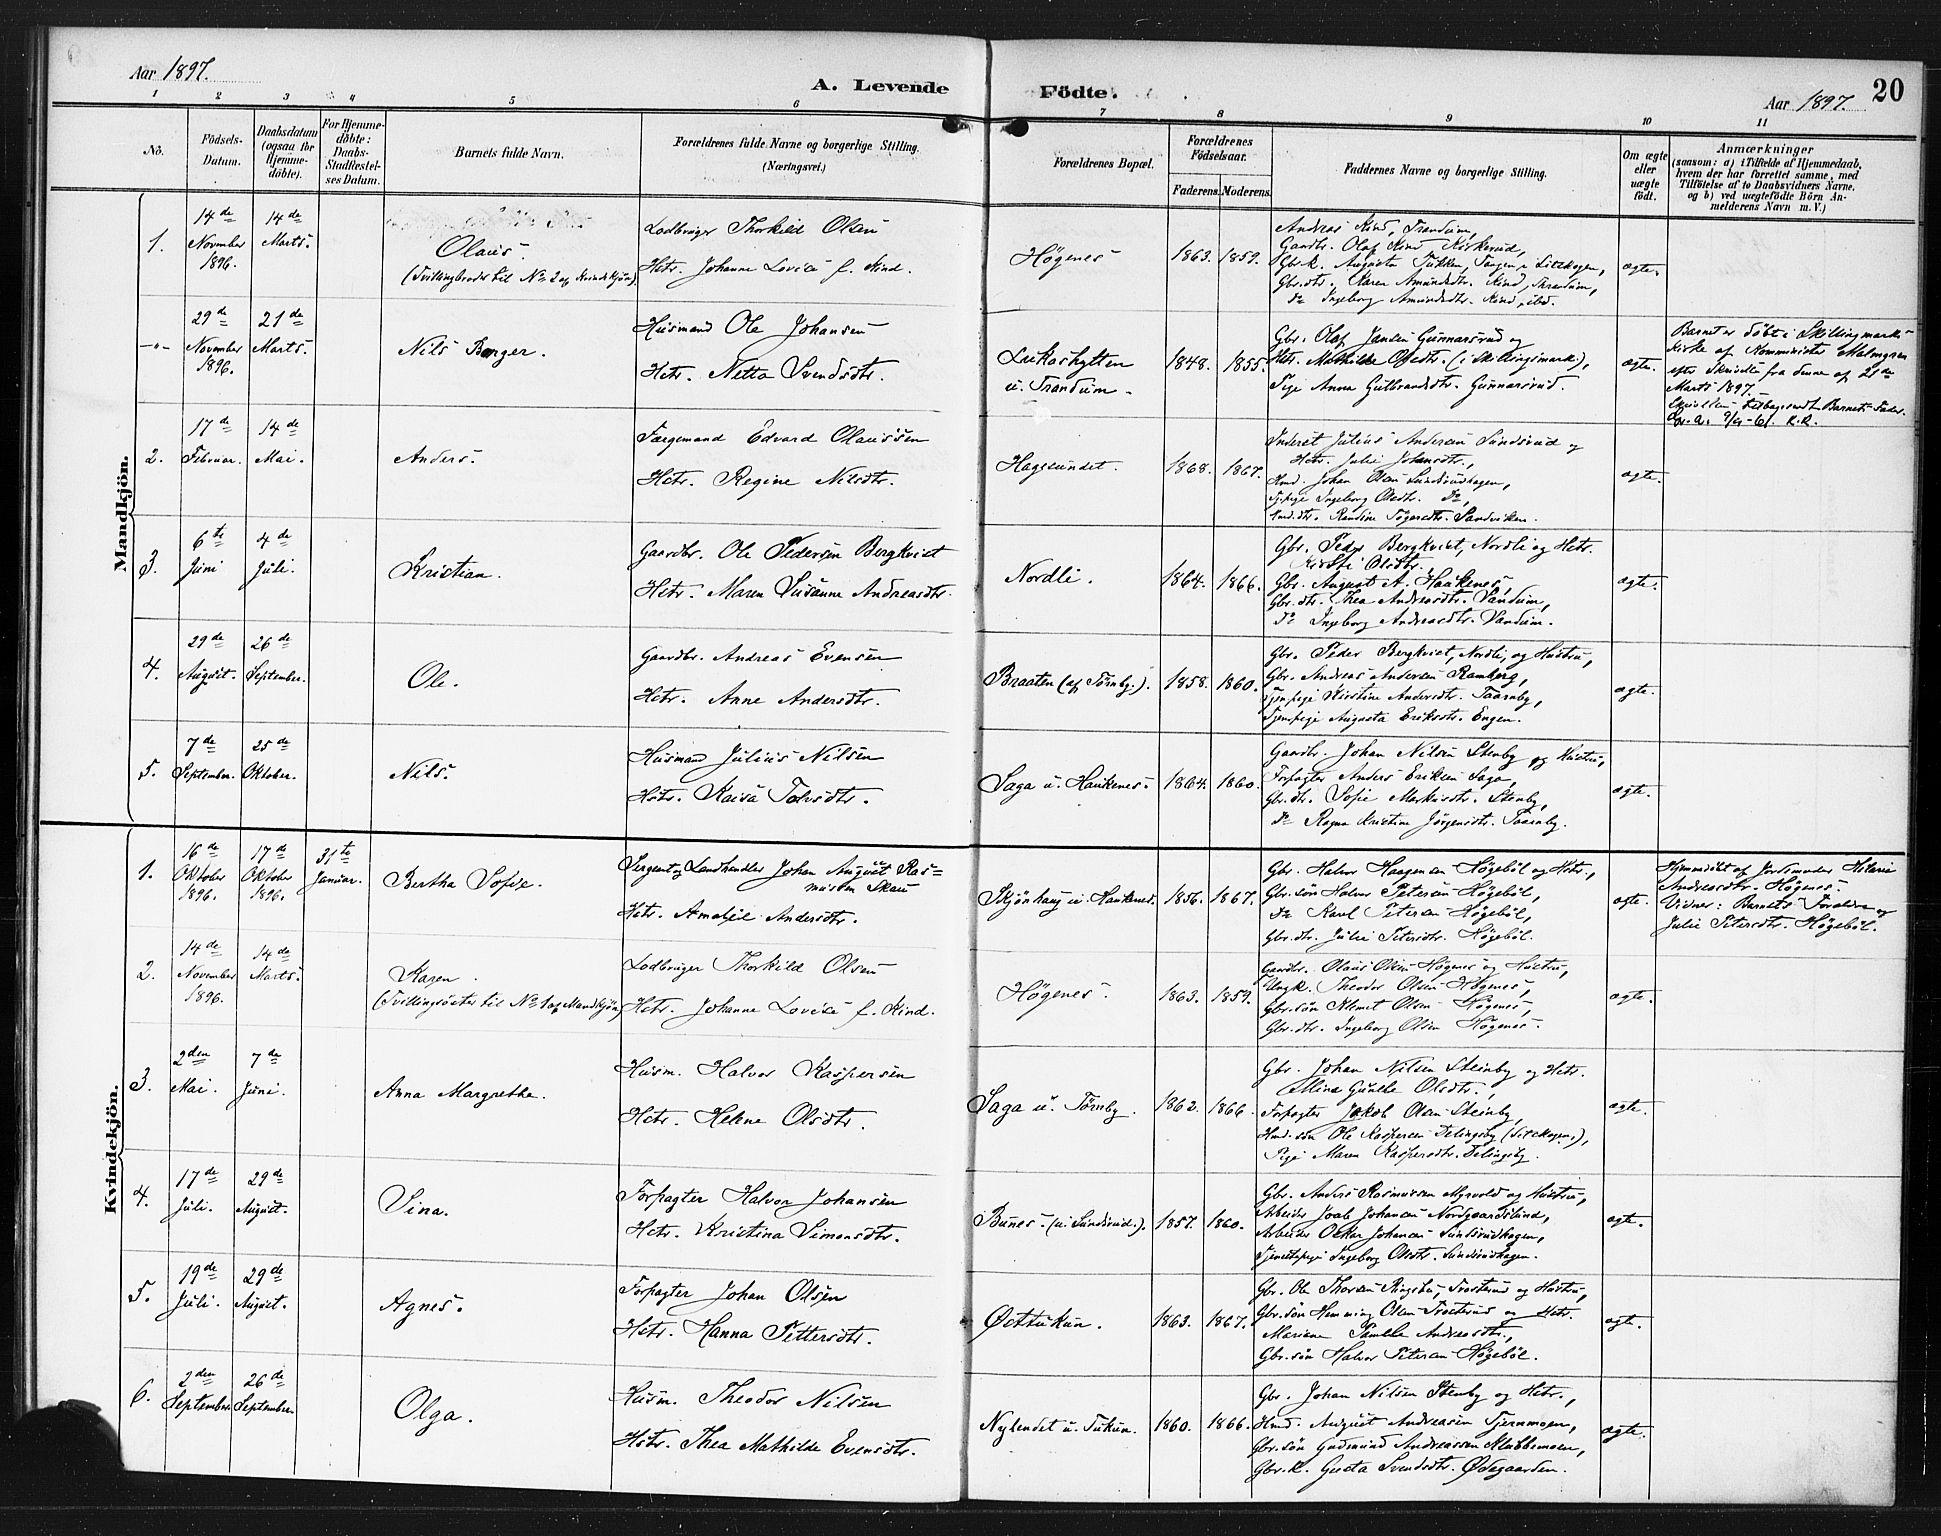 Aar 1897.
A. Levende Födte.
Aar 1897.
20
1 2 3 4 5 6 7 8 9 10 11
No.
Födsels-
Datum.
Daabsdatum
(ogsaa for
Hjemme-
döbte).
For Hjemme-
döbte:
Daabs-
Stadfæstel-
ses Datum.
Barnets fulde Navn.
Forældrenes fulde Navne og borgerlige Stilling.
(Næringsvei.)
Forældrenes Bopæl.
Forældrenes
Födselsaar.
Faderens. Moderens.
Faddernes Navne og borgerlige Stilling.
Om ægte
eller
uægte
født.
Anmærkninger
(saasom: a) i Tilfælde af Hjemmedaab,
hvem der har forrettet samme, med
Tilföielse af to Daabsvidners Navne.
og b) ved uægtefödte Börn An-
melderens Navn m. V.)
Mandkjön.
1.
14de November 1896.
14de Marts.
Olaus.
(Tvillingbroder til No 2 af Kvindekjön).
Lodbruger Thorkild Olsen
Hstr. Johanne Lovise f. Kind.
Högenes
1863. 1859.
Andreas Kind, Trandum,
Gaardbr. Olaf Kind, Kirkerud,
Gbr.k. Augusta Tukken, Tangen i Eidskogen,
Gbr.dtr. Karen Amundsdtr. Kind, Trandum,
Do Ingeborg Amundsdtr. Kind, ibd.
ægte.
-"-
29de November 1896.
21de Marts.
Nils Berger.
Husmand Ole Johansen
Hstr. Netta Svendsdtr.
Lukashytten
u. Trandum.
1848. 1855.
Gbr. Olaf Jansen Gunnarsrud og
Hstr. Mathilde Olsdtr. (i Skillingsmark.),
Pige Anna Gulbrandsdtr. Gunnarsrud.
ægte.
Barnet er döbt i Skillingmarks
Kirke af Komminister Malmgren
efter Skrivelse fra denne af 21de
Marts 1897.
2.
17de Februar.
14de Mai.
Anders.
Færgemand Edvard Olaussen
Hstr. Regine Nilsdtr.
Hagesundet.
1868. 1867.
Inderst Julius Andersen Sundsrud og
Hstr. Julie Johansdtr.,
Hmd. Johan Olsen Sundsrudhagen,
Tj.pige Ingeborg Olsdtr. Do,
Hmd.dtr. Randine Sandviken.
ægte.
3.
6te Juni
4de Juli.
Kristian.
Gaardbr. Ole Pedersen Bergkvist
Hstr. Maren Susanne Andreasdtr.
Nordli.
1864. 1866.
Gbr. Peder Bergkvist, Nordli og Hstr.
Kirsti Olsdtr.
Gbr. August A. Haukenes,
Gbr.dtr. Thea Andreasdtr. Vandum,
Do Ingeborg Andreasdtr. Vandum.
ægte.
4.
29de August.
26de September.
Ole.
Gaardbr. Andreas Evensen
Hstr. Anne Andersdtr.
Braaten (af Törnby.).
1858. 1860.
Gbr. Peder Bergkvist, Nordli, og Hustru,
Gbr. Andreas Andersen Ramberg,
Tjenpige Kirstine Andersdtr. Taarnby,
Tjenpige Augusta Eriksdtr. Engen.
ægte.
5.
7de September.
25de Oktober.
Nils.
Husmand Julius Nilsen
Hstr. Kaisa Tolvsdtr.
Saga u. Haukenes.
1864. 1860.
Gaardbr. Johan Nilsen Stenby og Hustru,
Forpagter Anders Eriksen Saga,
Gbr.dtr. Sofie Markusdtr. Stenby,
Do Ragna Kristine Jörgensdtr. Taarnby.
ægte.
Kvindekjön.
1.
16de Oktober 1896.
17de Oktober 1896.
31te Januar.
Bertha Sofie.
Sergent og Landhandler Johan August Ras-
mussen Skau
Hstr. Amalie Andersdtr.
Skjönhaug u. Haukenes.
1856. 1867.
Gbr. Halvor Haagensen Högeböl og Hstr.,
Gbr.sön Halvor Petersen Högeböl,
Do Karl Petersen Högeböl,
Gbr.dtr. Julie Petersdtr. Högeböl.
ægte.
Hjemmedöbt af Jordemoder Hilaria
Andreasdtr. Högenes.
Vidner: Barnets Forældre og
Julie Petersdtr. Högeböl.
2.
14de November 1896.
14de Marts.
Karen.
(Tvillingsöster til No 1 af Mandkjön)
Lodbruger Thorkild Olsen
Hstr. Johanne Lovise f. Kind.
Högenes.
1863. 1859.
Gaardbr. Olaus Olsen Högenes og Hustru,
Ungk. Theodor Olsen Högenes,
Gbr.sön Klemet Olsen Högenes,
Gbr.dtr. Ingeborg Olsen Högenes.
ægte.
3.
2den Mai.
7de Juni.
Anna Margrethe.
Husm. Halvor Kaspersen
Hstr. Helene Olsdtr.
Saga u. Törnby.
1862. 1866.
Gbr. Johan Nilsen Stenby og Hstr.
Mina Gunille Olsdtr.,
Forpagter Jakob Olsen Stenby,
Hmd.sön Ole Kaspersen Delingsby (Eidskogen.),
Pige Maren Kaspersdtr. Delingsby.
ægte.
4.
17de Juli.
29de August.
Sina.
Forpagter Halvor Johansen
Hstr. Kristina Simensdtr.
Bunes. (u. Sundsrud.).
1857. 1860.
Gbr. Anders Rasmussen Myrvold og Hustru,
Arbeider Joab Johansen Nordgaardslund,
Arbeider Oskar Johansen Sundsrudhagen,
Tjenestepige Ingeborg Olsdtr. Sundsrudhagen.
ægte.
5.
19de Juli.
29de August.
Agnes.
Forpagter Johan Olsen
Hstr. Hanna Pettersdtr.
Østtukun.
1863. 1867.
Gbr. Ole Thorsen Ringsbu, Trosterud og Hustru,
Gbr.sön Hemming Olsen Trosterud og Hstr.
Mariane Pernille Andreasdtr.,
Gbr.sön Halvor Petersen Högeböl.
ægte.
6.
2den September.
26de September.
Olga.
Husm. Theodor Nilsen
Hstr. Thea Mathilde Evensdtr.
Nylendet u. Tukun.
1860. 1866.
Gbr. Johan Nilsen Stenby og Hstr.,
Hmd. August Andreasen Tjernmoen,
Gbr.sön Gudmund Andreassen Klubbemoen,
Gbr.k. Gusta Svendsdtr. Ødegaarden.
ægte.